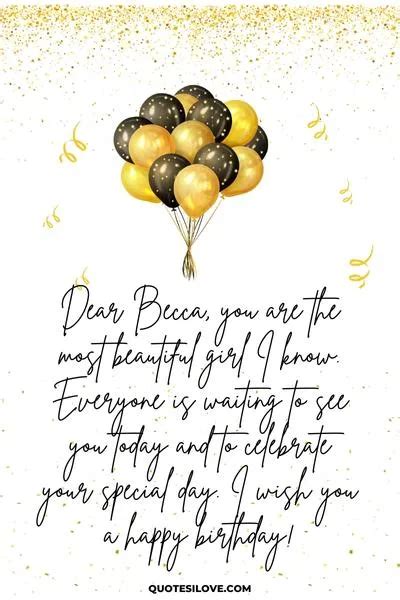 Dear Becca, you are the
most beautiful girl I know.
Everyone is waiting to see
you today and to celebrate
your special day. I wish you
a happy birthday!
QUOTESILOVE.COM